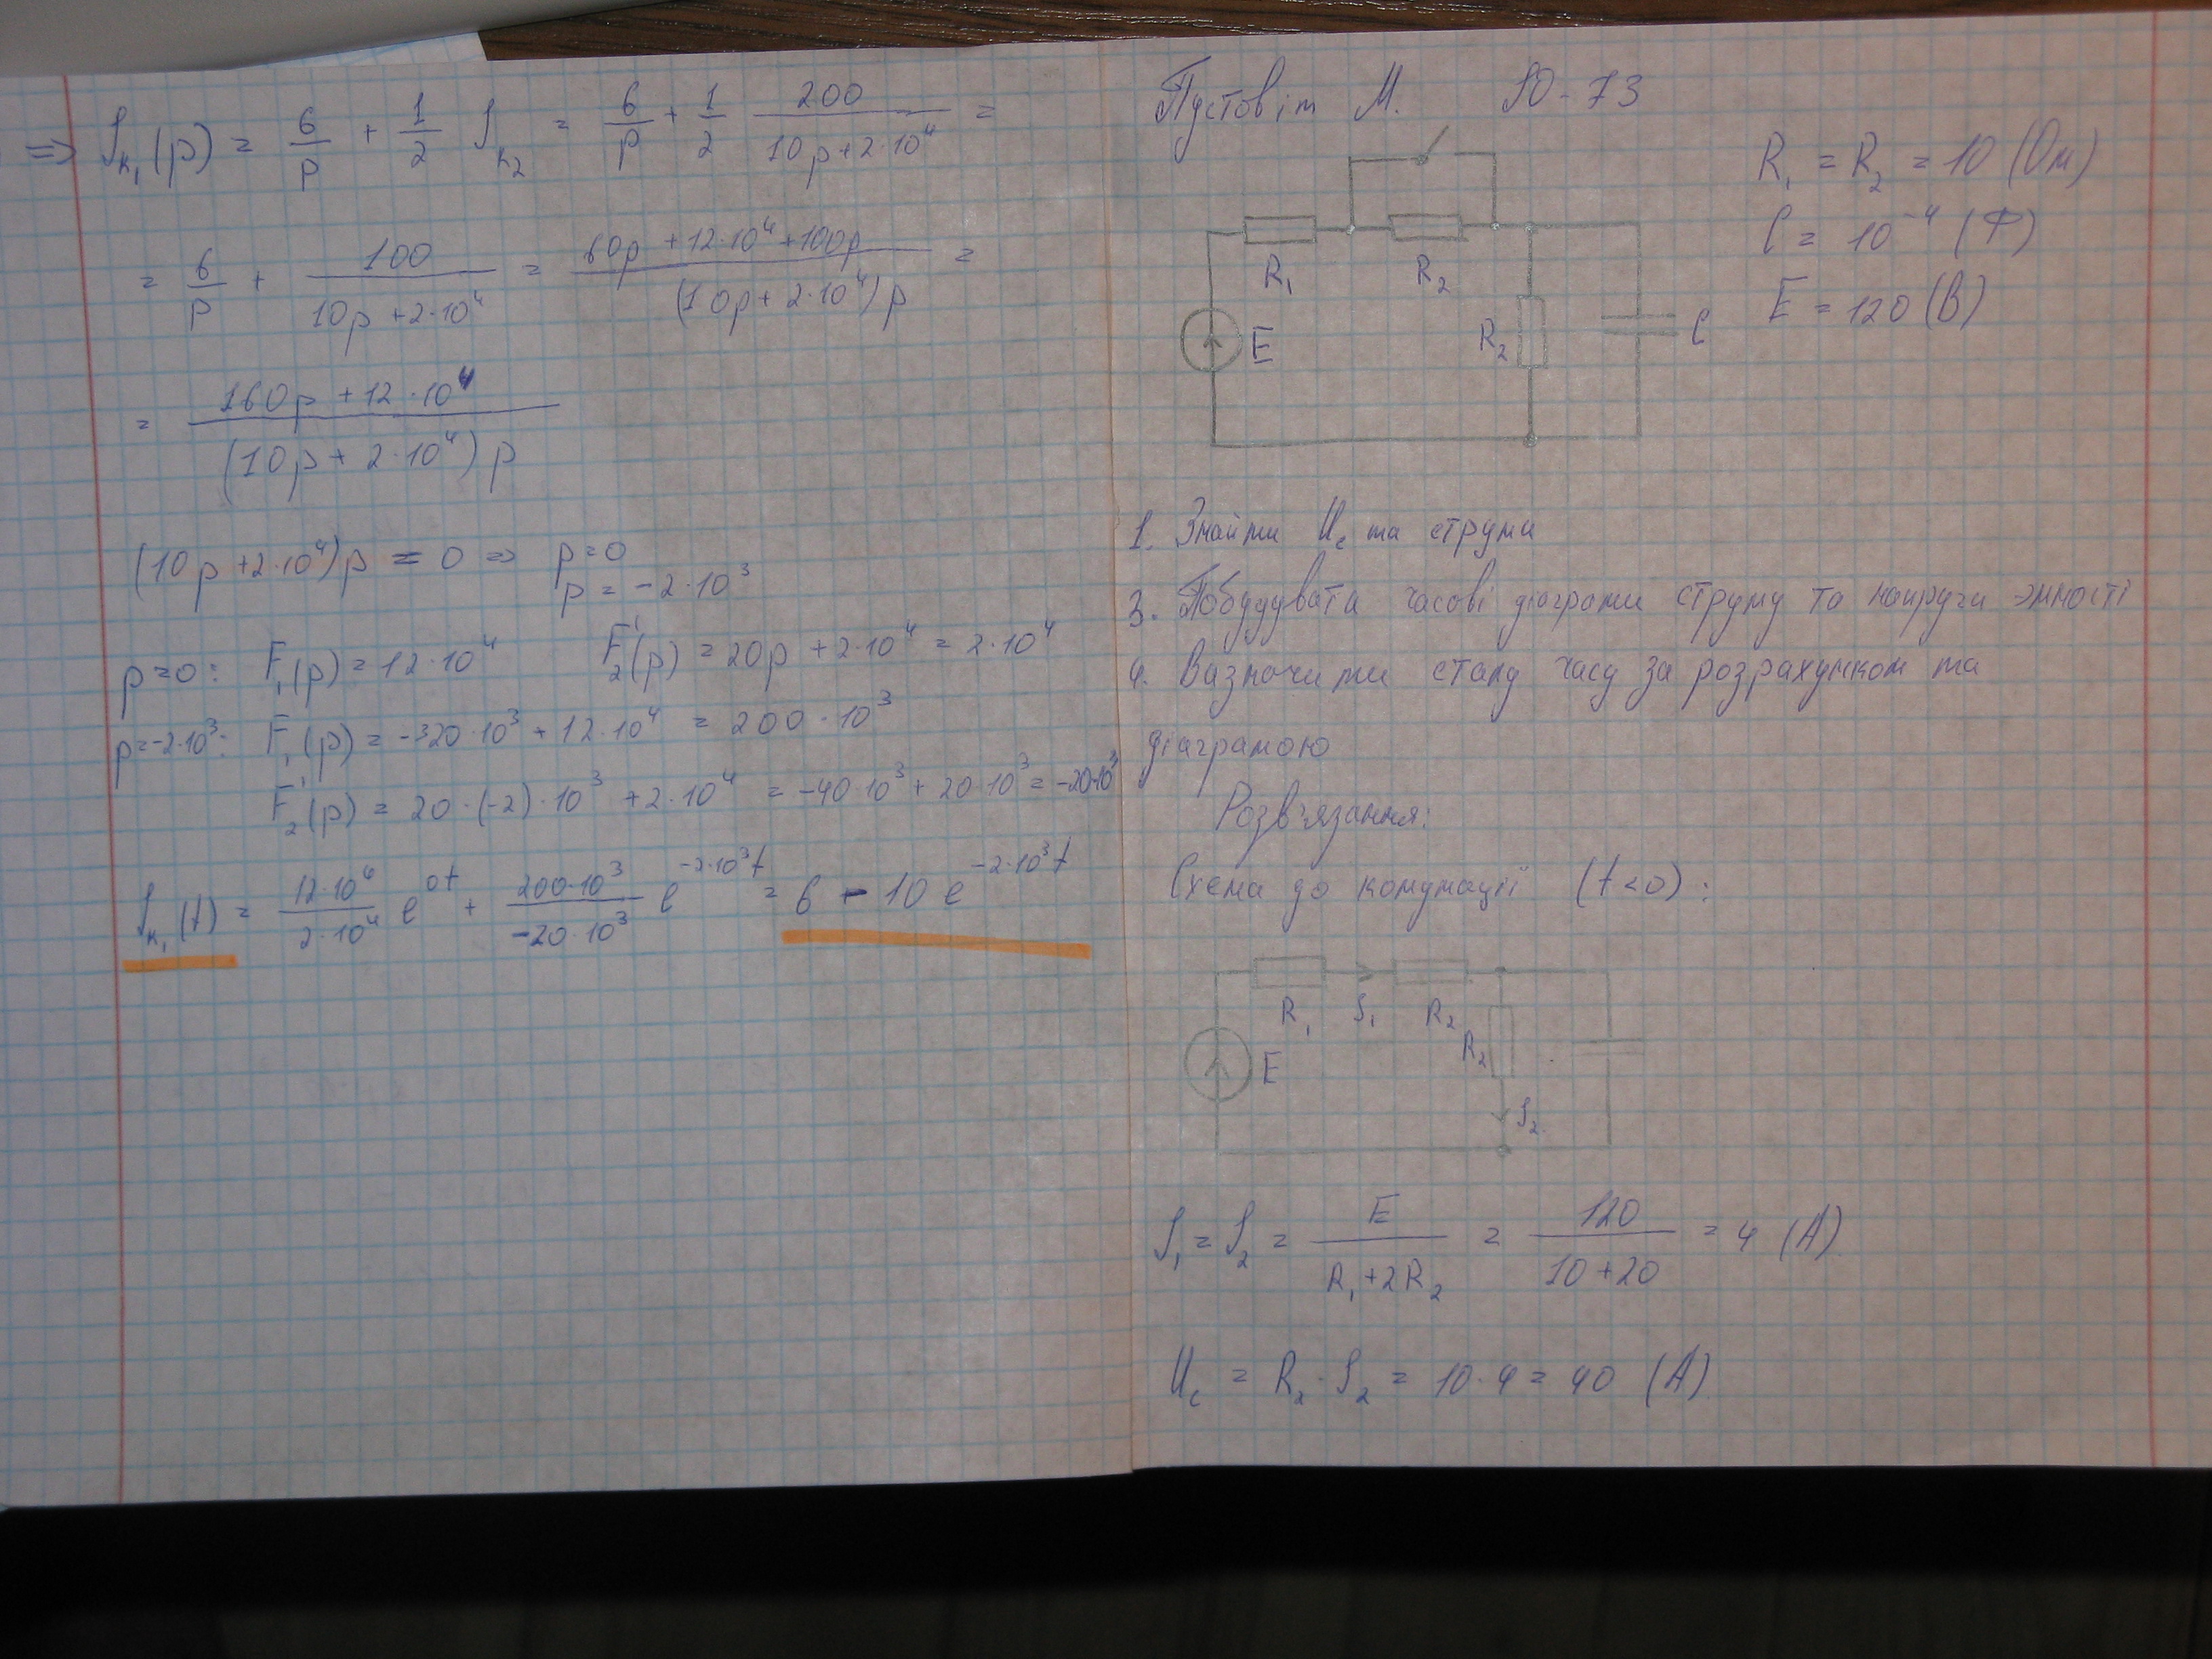 => I_k₁(p) = 6/p + 1/2 I_k₂ = 6/p + 1/2 200/(10p+2·10⁴) =
= 6/p + 100/(10p+2·10⁴) = (60p+12·10⁴+100p)/((10p+2·10⁴)p) =
= (160p+12·10⁴)/((10p+2·10⁴)p)
(10p+2·10⁴)p = 0 => p=0
p = -2·10³
p=0: F₁(p) = 12·10⁴ F₂'(p) = 20p+2·10⁴ = 2·10⁴
p=-2·10³: F₁(p) = -320·10³+12·10⁴ = 200·10³
F₂'(p) = 20·(-2)·10³+2·10⁴ = -40·10³+20·10³ = -20·10³
I_k₁(t) = 12·10⁴/2·10⁴ e^0t + 200·10³/-20·10³ e^-2·10³t = 6 - 10e^-2·10³t
Пустовіт М. Ю-73
R₁ = R₂ = 10 (Ом)
C = 10⁻⁴ (Ф)
E = 120 (В)
R₁ R₂
E R₂ C
1. Знайти Uc та струми
3. Побудувати часові діаграми струму та напруги ємності
4. Вазначити сталу часу за розрахунком та
діаграмою
Розв'язання:
Схема до комутації (t<0):
R₁ I₁ R₂
R₂
E
I₂
I₁ = I₂ = E/(R₁+2R₂) = 120/(10+20) = 4 (A)
Uc = R₂·I₂ = 10·4 = 40 (A)